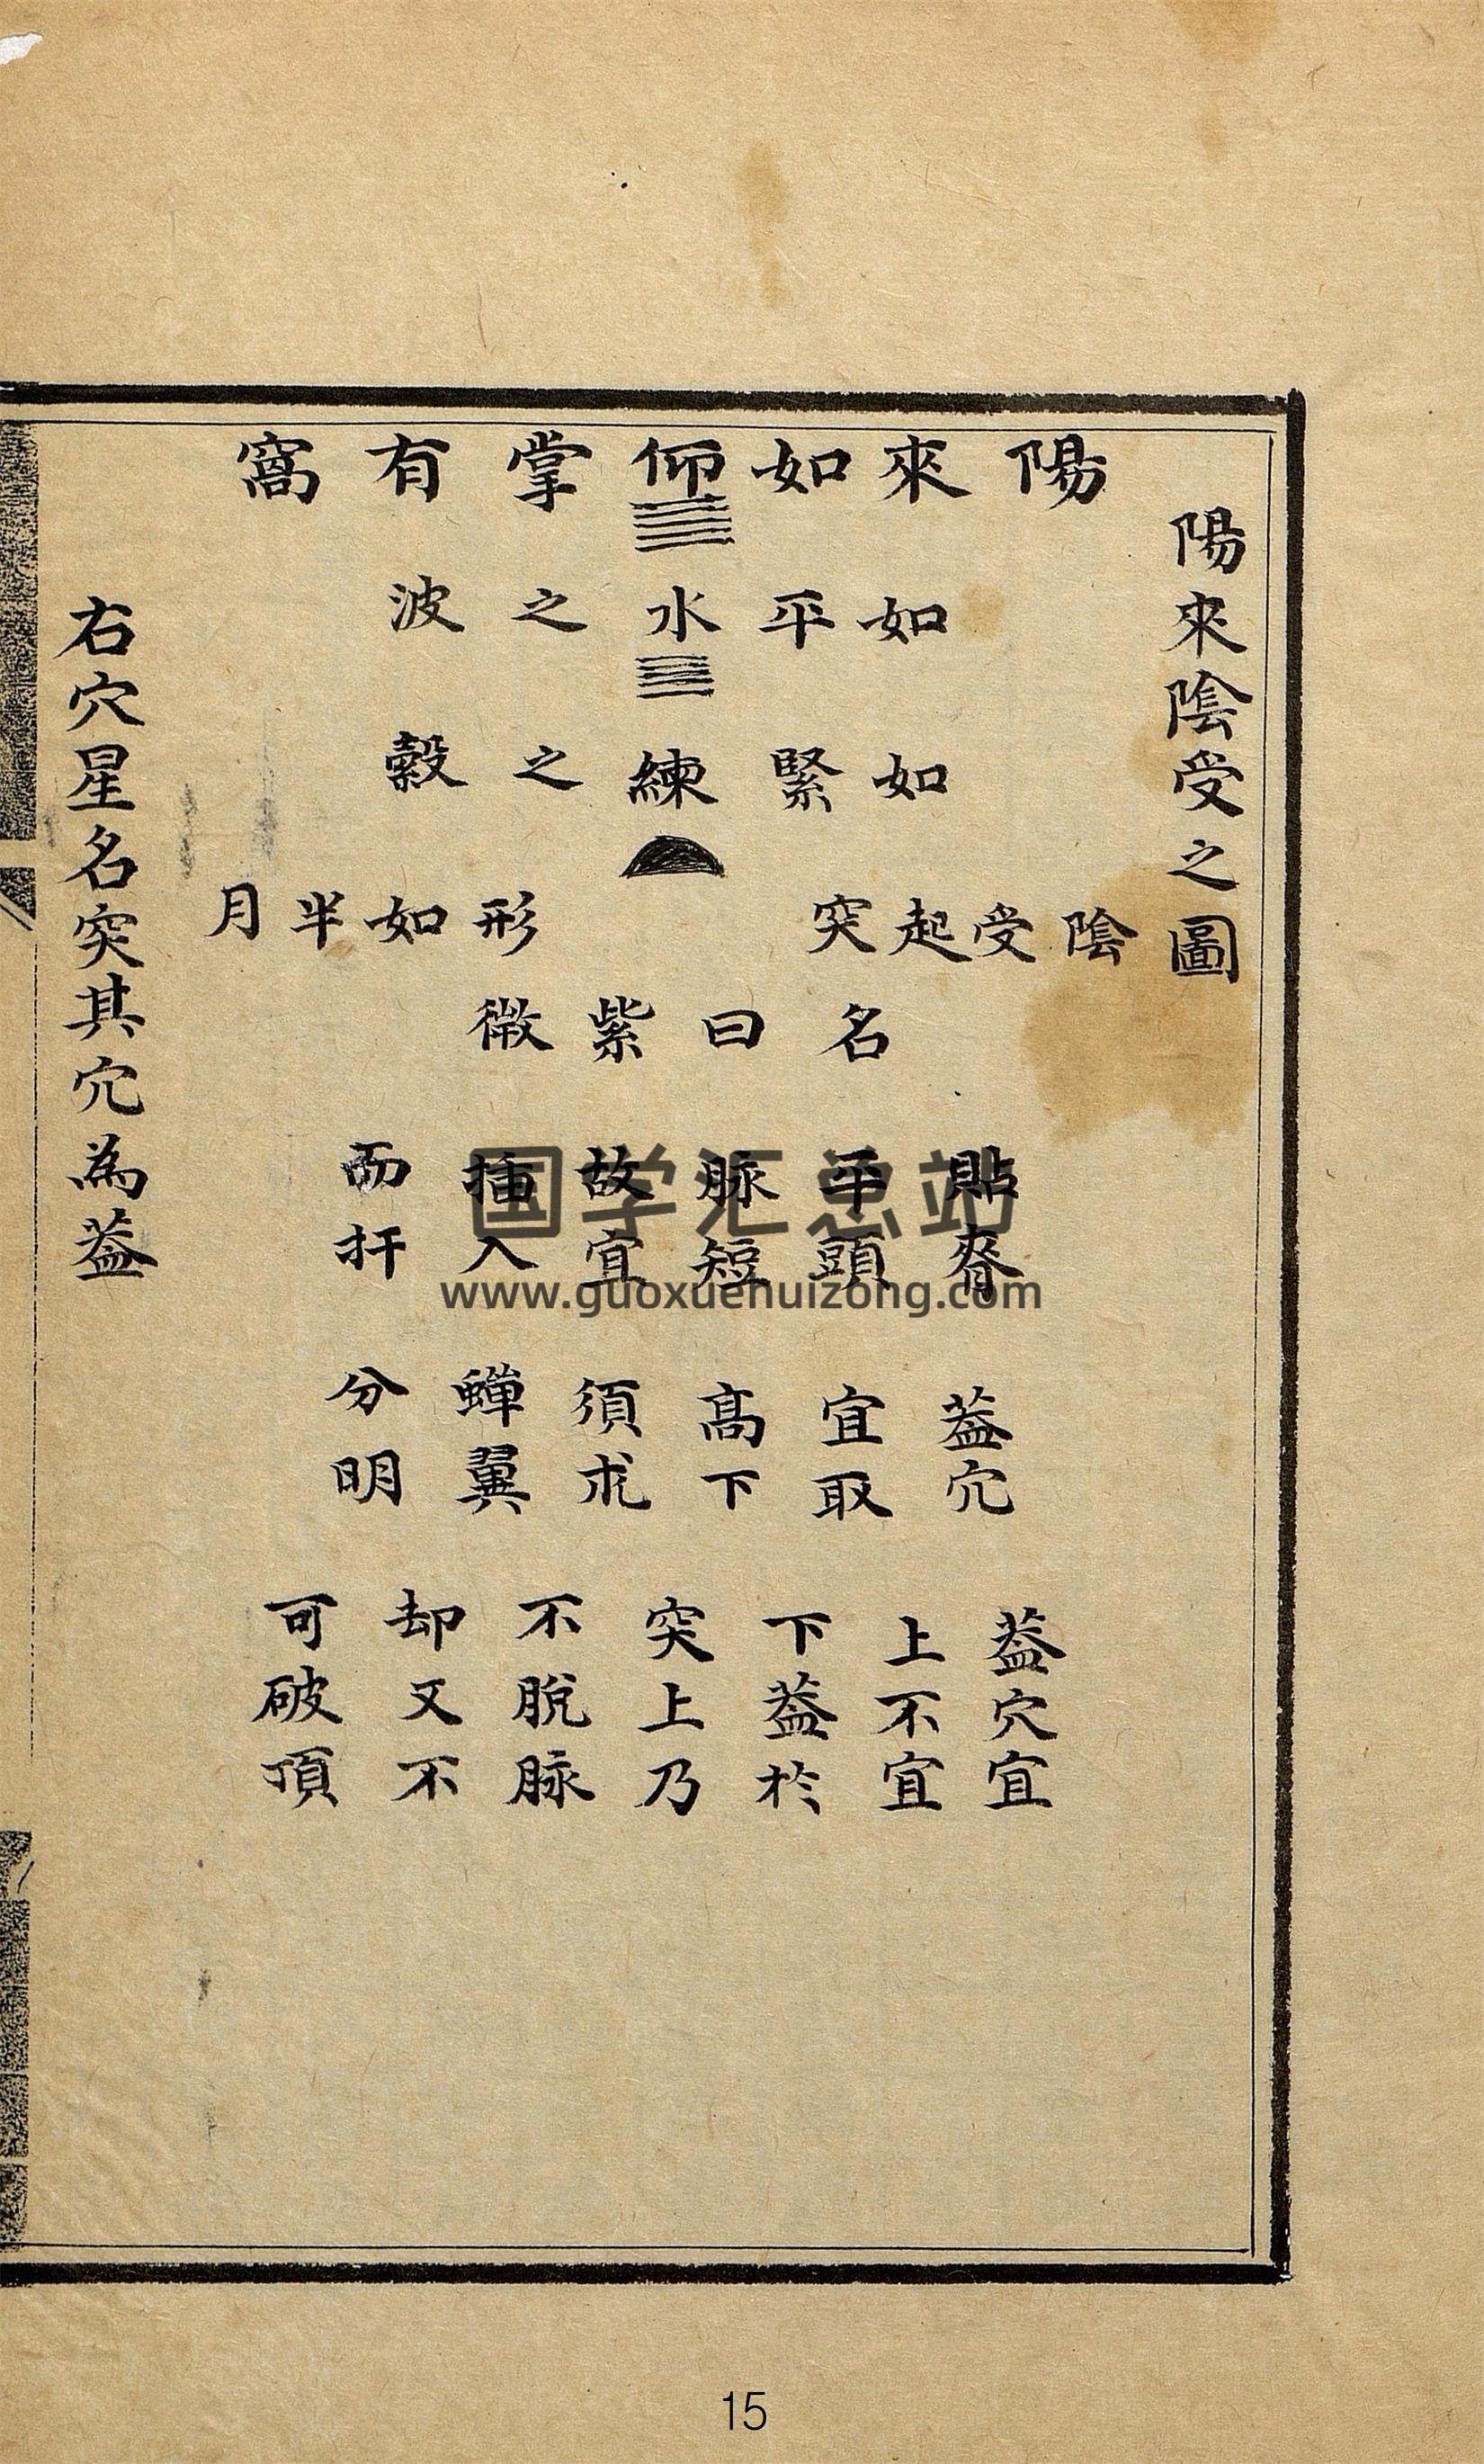 陽來陰受之圖
陽來如仰掌有窩
如平水之波
如緊練之縠
陰受起突
形如半月
名曰紫微
貼脊
平頭
脉短
故宜
揷入
而扦
葢穴
宜取
高下
須求
蟬翼
分明
葢穴宜
上不宜
下葢於
突上乃
不脫脉
却又不
可破頂
右穴星名突其穴為葢
国学汇总站
www.guoxuehuizong.com
15